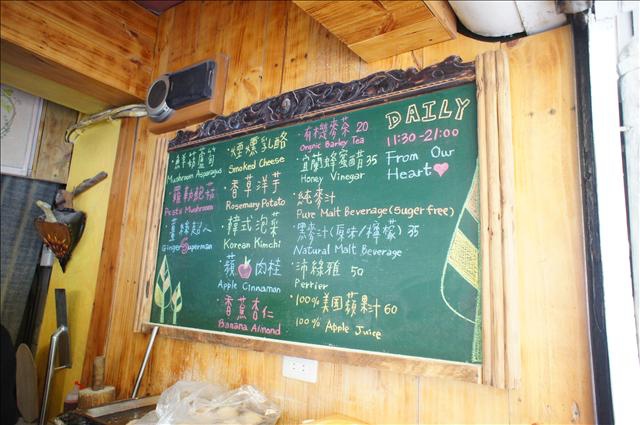 蘑菇蘆筍
Mushroom Asparagus
羅勒鮑菇
Pesto Mushroom
薑絲超人
Ginger Superman
煙燻乳酪
Smoked Cheese
香草洋芋
Rosemary Potato
韓式泡菜
Korean Kimchi
蘋 肉桂
Apple Cinnaman
香蕉杏仁
Banana Almond
有機麥茶 20
Orgnic Barley Tea
宜蘭蜂蜜醋 35
Honey Vinegar
純麥汁
Pure Malt Beverage (Suger free)
黑麥汁 (原味/檸檬) 35
Natural Malt Beverage
沛綠雅 50
Perrier
100% 美国蘋果汁 60
100% Apple Juice
DAILY
11:30-21:00
From Our
Heart